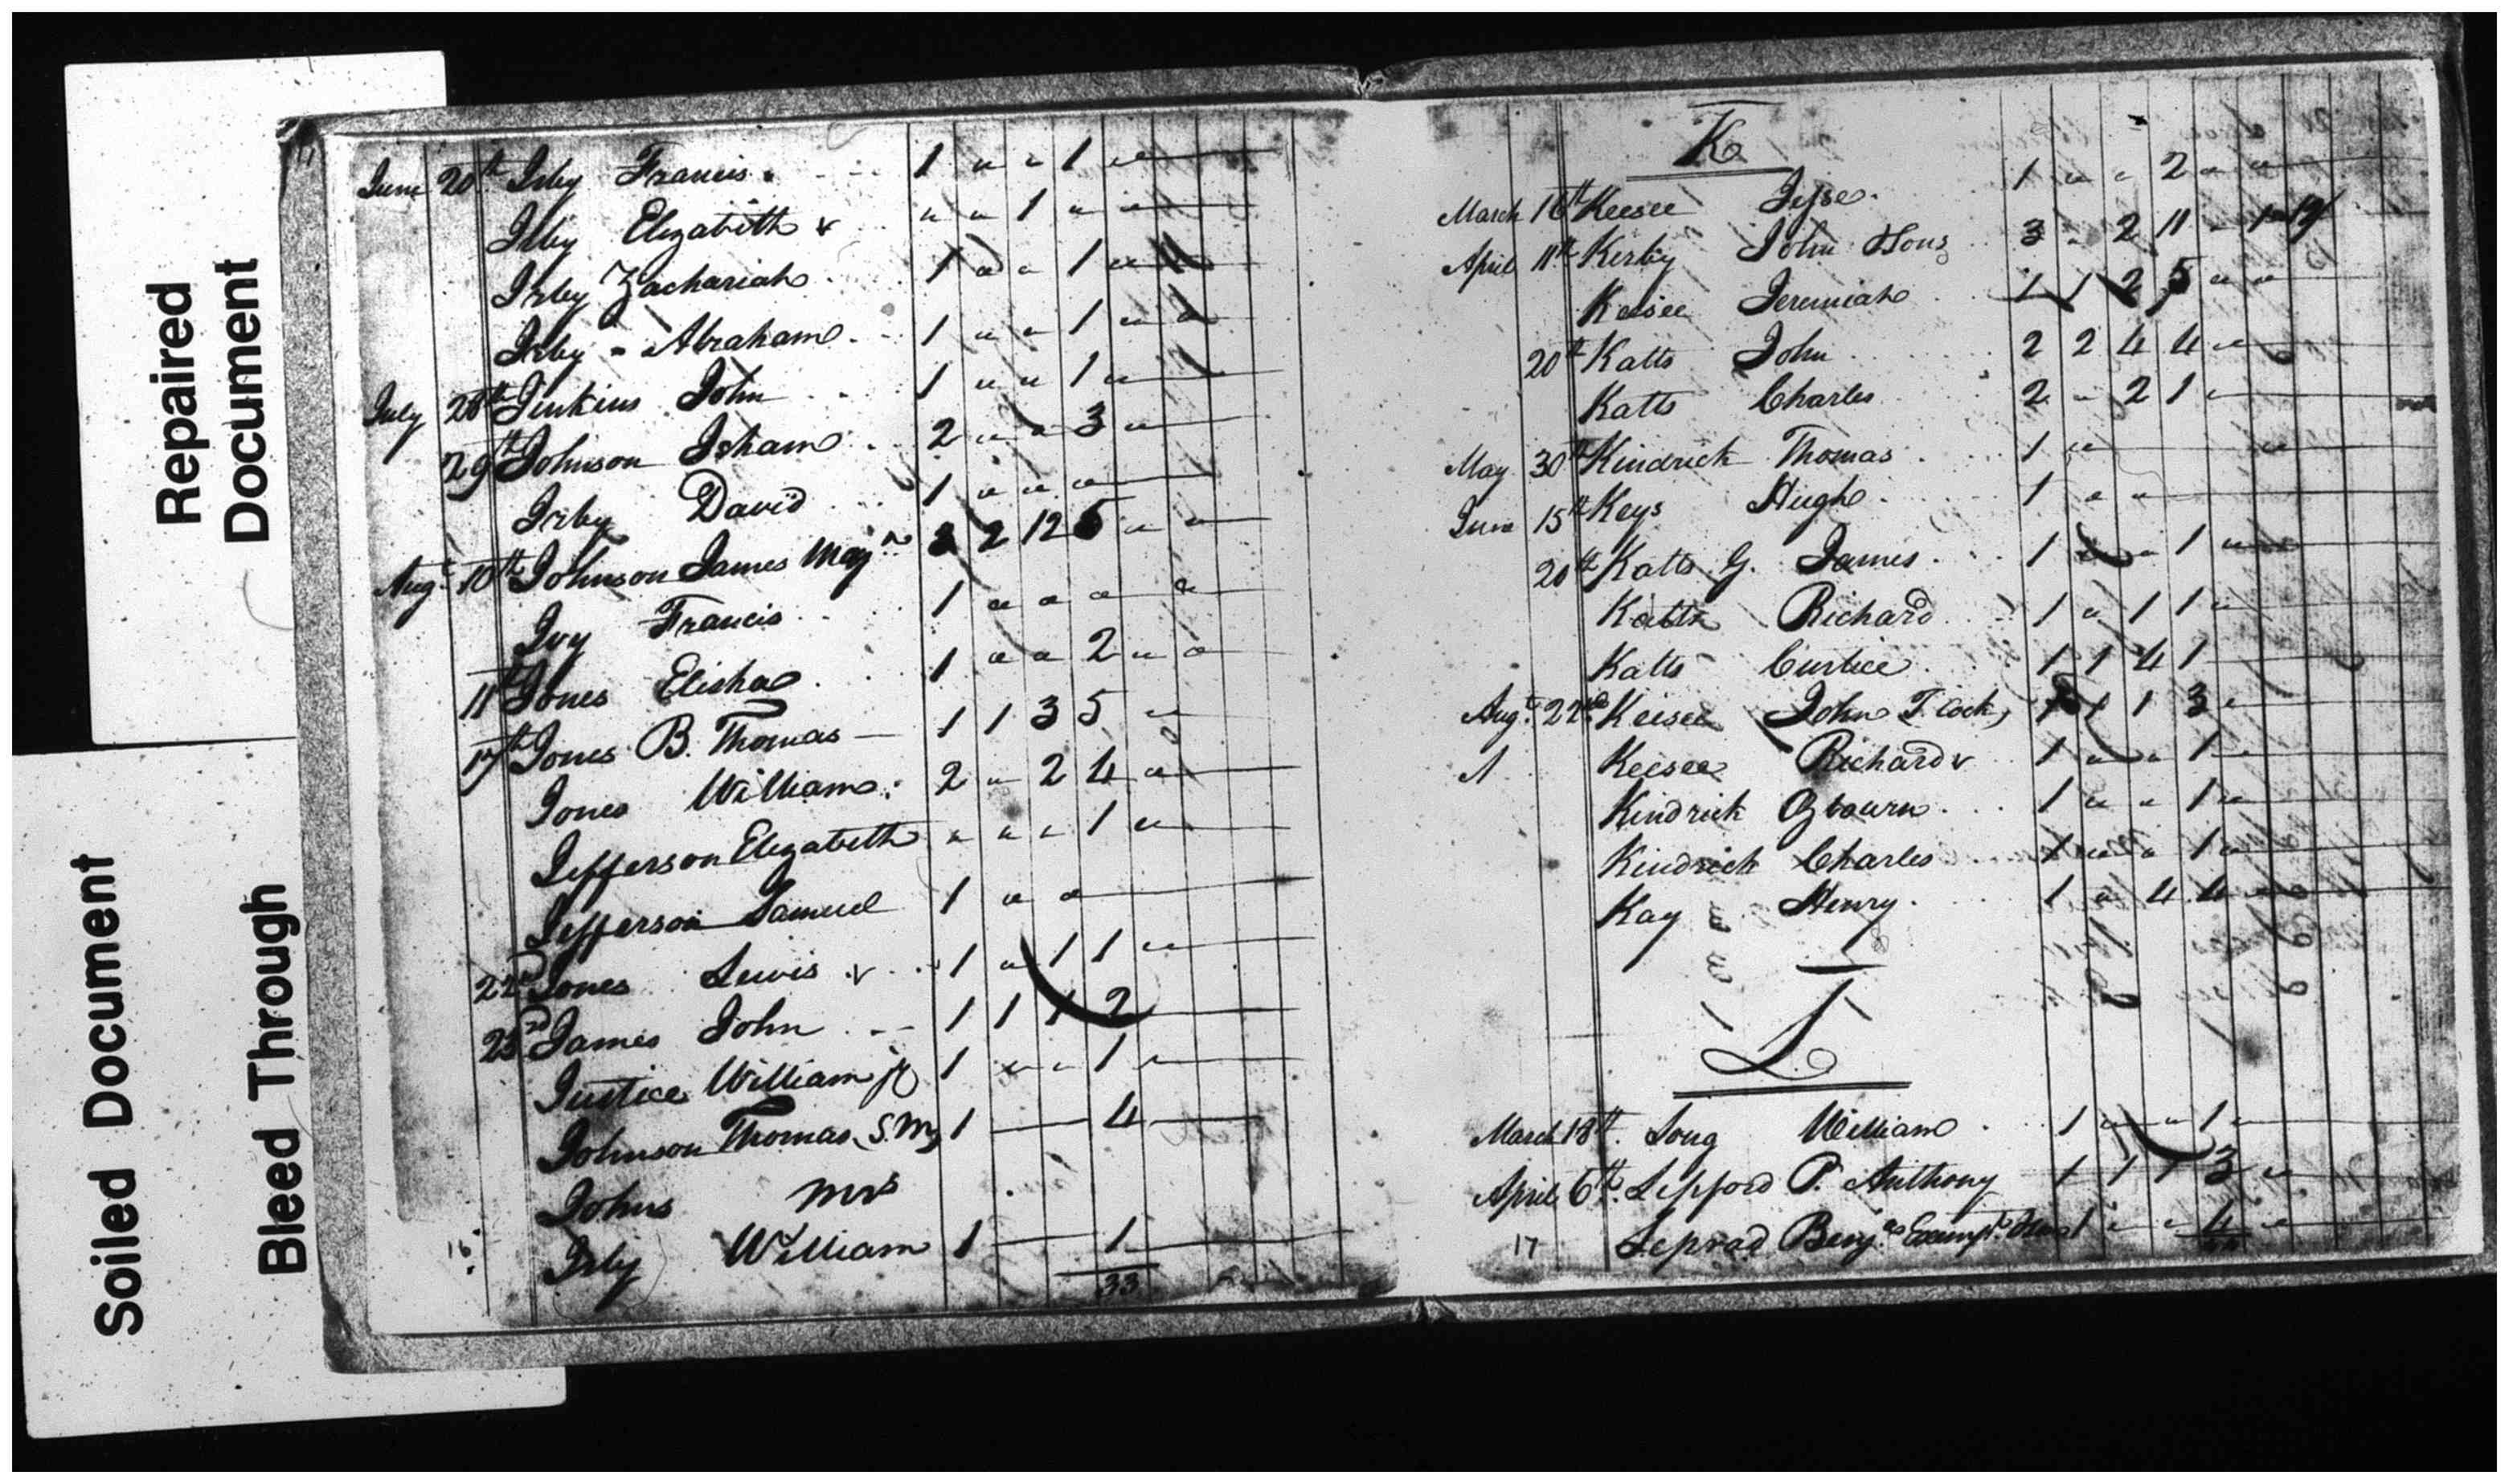 Repaired
Document
Soiled Document
Bleed Through
June 20th Irby Francis 1 " " 1 "
Irby Elizabeth v " " 1 " "
Irby Zachariah 1 " " 1 "
Irby Abraham 1 " " 1 " "
July 28th Jenkins John 1 " " 1 "
29th Johnson Isham 2 " " 3 "
Irby David 1 " " "
Augt 10th Johnson James Majr 3 2 12 5 " "
Ivy Francis 1 " " " "
11th Jones Elisha 1 " " 2 " "
17th Jones B. Thomas 1 1 3 5 "
Jones William 2 " 2 4 "
Jefferson Elizabeth " " " 1 "
Jefferson Samuel 1 " "
22d Jones Lewis v 1 " 1 1 "
23rd James John 1 1 1 2
Justice William jr 1 " " 1 "
Johnson Thomas, S. M 1 4
Johns Mrs
16 Irby William 1 1
33
K
March 16th Keesee Jesse 1 " " 2 " "
April 11th Kerby John Sons 3 " 2 11
Keesee Jeremiah 1 1 2 5 " "
20th Katts John 2 2 4 4 "
Katts Charles 2 " 2 1 "
May 30th Kindrick Thomas 1 " "
June 15th Keys Hugh 1 " "
20th Katts G. James 1 " " 1 "
Katts Richard 1 " 1 1 "
Katts Curtice 1 1 4 1
Augt 22nd Keisee John T Cock 1 1 3 "
Keesee Richard v 1 " " 1 "
Kindrick Ozbourn 1 " " 1 "
Kindrick Charles 1 " " 1 "
Kay Henry 1 " 4 4 "
L
March 18th Long William 1 " " 1 "
April 6th Lepford P. Anthony 1 1 1 3 "
17 Leprad Benja Exempt 1 " " 4 "